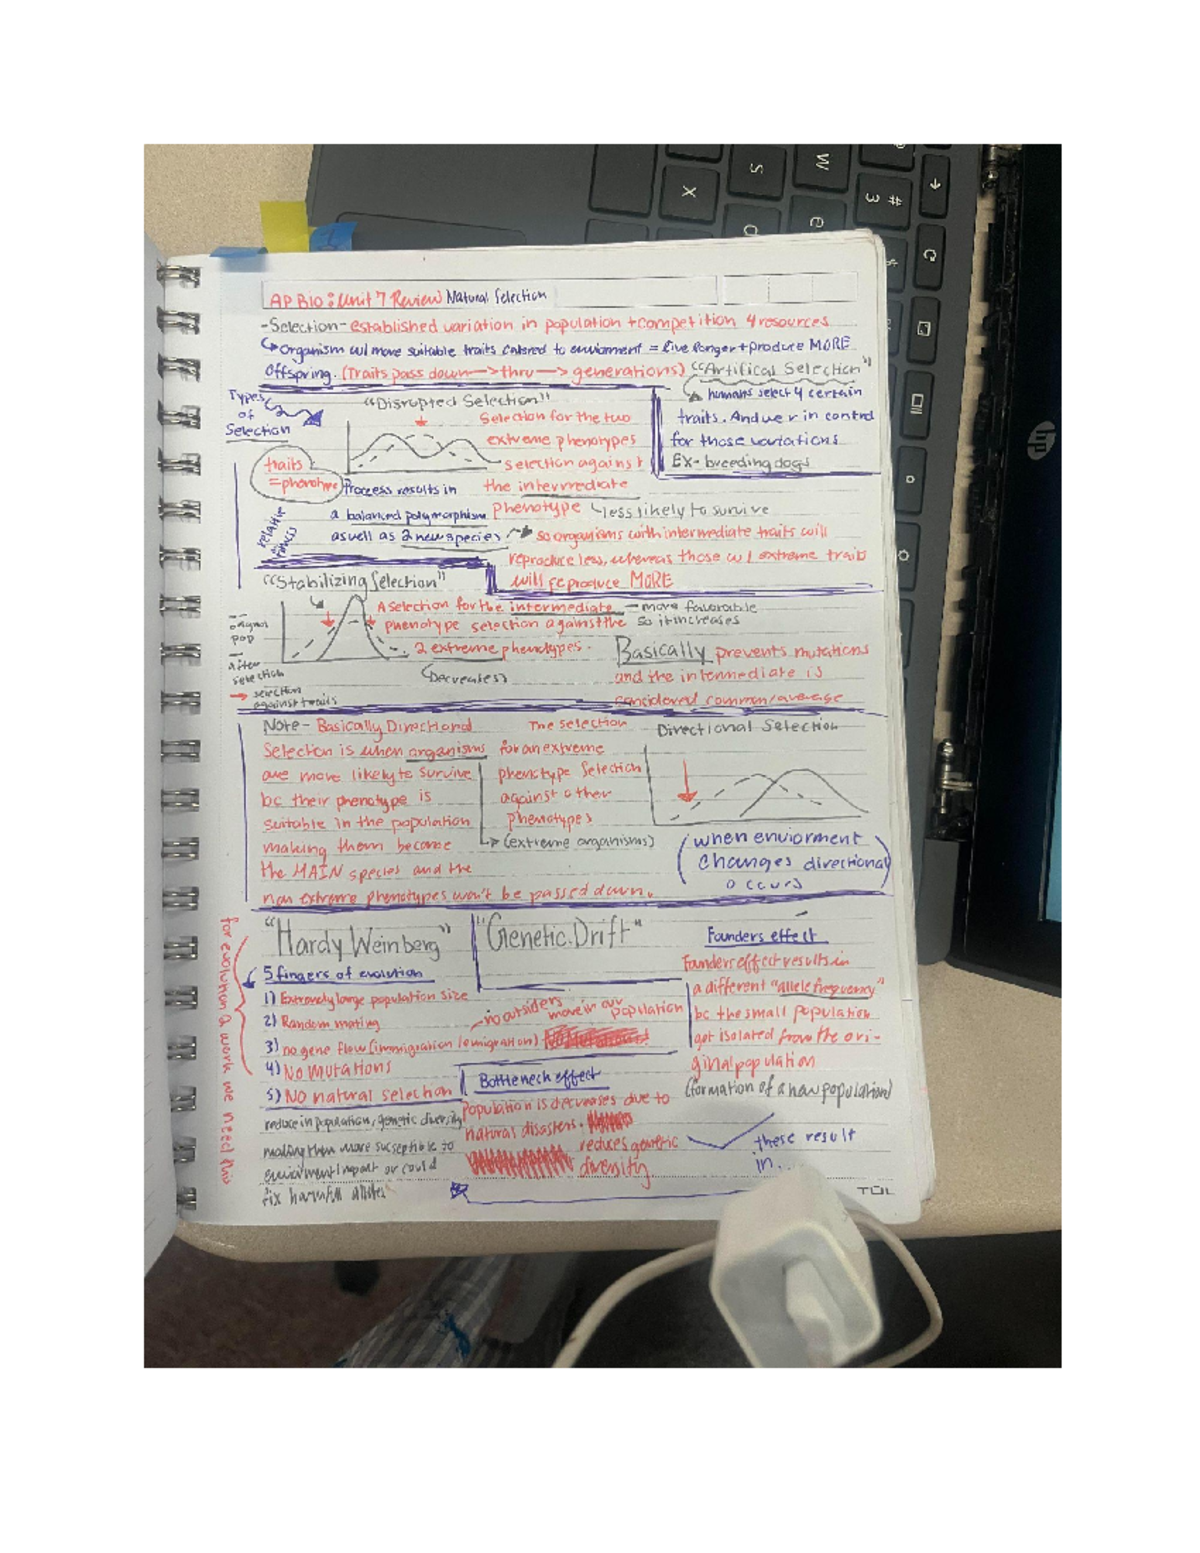 AP Bio: Unit 7 Review Natural Selection
-Selection- established variation in population + competition 4 resources
Organism w/ more suitable traits catered to enviorment = live longer + produce MORE
offspring. (Traits pass down -> thru -> generations)
"Artifical Selection"
humans select 4 certain
traits. And we r in control
for those variations
Ex- breeding dogs
Types
of
Selection
"Disrupted Selection"
Selection for the two
extreme phenotypes
selection against
the intermediate
phenotype
less likely to survive
traits
=phenotype
Process results in
a balanced polymorphism
as well as 2 new species
so organisms with intermediate traits will
reproduce less, whereas those w/ extreme traits
will reproduce MORE
relative
fitness
"Stabilizing Selection"
A selection for the intermediate
phenotype selection against the
2 extreme phenotypes.
- more favorable
so it increases
(Decreases)
- original
pop
- after
selection
-> selection
against traits
Basically prevents mutations
and the intermediate is
concidered common/average
Note- Basically Directional
Selection is when organisms
are more likely to survive
bc their phenotype is
suitable in the population
making them become
the MAIN species and the
non extreme phenotypes won't be passed down.
The selection
for an extreme
phenotype Selection
against other
phenotypes
(extreme organisms)
Directional Selection
(when enviorment
changes directional
occurs)
"Hardy Weinberg"
5 fingers of evolution
1) Extremely large population size
2) Random mating
3) no gene flow (immigration/emigration)
4) No mutations
5) No natural selection
for evolution 2 work we need this
"Genetic Drift"
- no outsiders move in our population
Founders effect
Founders effect results in
a different "allele frequency"
bc the small population
got isolated from the ori-
ginal population
(formation of a new population)
Bottleneck effect
Population is decreases due to
natural disasters.
reduces genetic
diversity
these result
in...
reduce in population, genetic diversity
making them more susceptible to
enviorment impact or could
fix harmful alleles
TUL
W
S
X
e
#
3